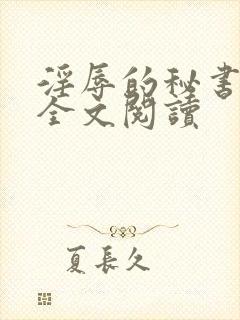 淫辱的秘書
全文閱讀
夏長久